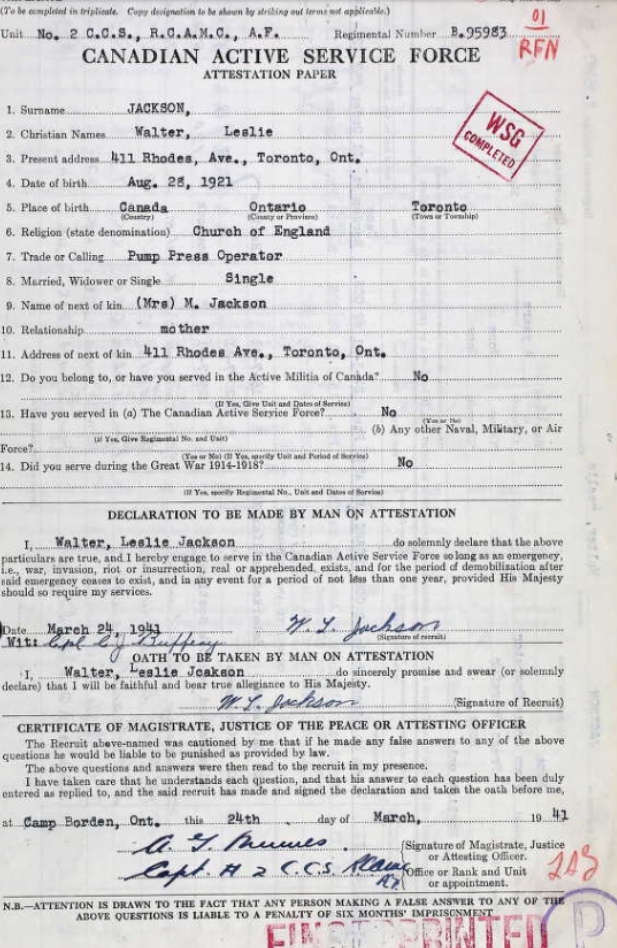 (To be completed in triplicate. Copy designation to be shown by striking out terms not applicable.)
01
Unit No. 2 C.C.S., R.C.A.M.C., A.F. Regimental Number B.95983
RFN
CANADIAN ACTIVE SERVICE FORCE
ATTESTATION PAPER
1. Surname JACKSON,
WSG
COMPLETED
2. Christian Names Walter, Leslie
3. Present address 411 Rhodes, Ave., Toronto, Ont.
4. Date of birth Aug. 28, 1921
5. Place of birth Canada Ontario Toronto
(Country) (County or Province) (Town or Township)
6. Religion (state denomination) Church of England
7. Trade or Calling Pump Press Operator
8. Married, Widower or Single Single
9. Name of next of kin (Mrs) M. Jackson
10. Relationship mother
11. Address of next of kin 411 Rhodes Ave., Toronto, Ont.
12. Do you belong to, or have you served in the Active Militia of Canada? No
(If Yes, Give Unit and Dates of Service)
13. Have you served in (a) The Canadian Active Service Force? No
(Yes or No)
(If Yes, Give Regimental No. and Unit) (b) Any other Naval, Military, or Air
Force?
(Yes or No) (If Yes, specify Unit and Period of Service)
14. Did you serve during the Great War 1914-1918? No
(If Yes, specify Regimental No., Unit and Dates of Service)
DECLARATION TO BE MADE BY MAN ON ATTESTATION
I, Walter, Leslie Jackson do solemnly declare that the above
particulars are true, and I hereby engage to serve in the Canadian Active Service Force so long as an emergency,
i.e., war, invasion, riot or insurrection, real or apprehended, exists, and for the period of demobilization after
said emergency ceases to exist, and in any event for a period of not less than one year, provided His Majesty
should so require my services.
Date March 24, 1941 W. L. Jackson
(Signature of recruit)
Wit:
OATH TO BE TAKEN BY MAN ON ATTESTATION
I, Walter, Leslie Jcakson do sincerely promise and swear (or solemnly
declare) that I will be faithful and bear true allegiance to His Majesty.
W. L. Jackson (Signature of Recruit)
CERTIFICATE OF MAGISTRATE, JUSTICE OF THE PEACE OR ATTESTING OFFICER
The Recruit above-named was cautioned by me that if he made any false answers to any of the above
questions he would be liable to be punished as provided by law.
The above questions and answers were then read to the recruit in my presence.
I have taken care that he understands each question, and that his answer to each question has been duly
entered as replied to, and the said recruit has made and signed the declaration and taken the oath before me,
at Camp Borden, Ont. this 24th day of March, 1941
Signature of Magistrate, Justice
or Attesting Officer.
Capt. # 2 C.C.S. Office or Rank and Unit
or appointment.
N.B.—ATTENTION IS DRAWN TO THE FACT THAT ANY PERSON MAKING A FALSE ANSWER TO ANY OF THE
ABOVE QUESTIONS IS LIABLE TO A PENALTY OF SIX MONTHS' IMPRISONMENT
FINGERPRINTED
P